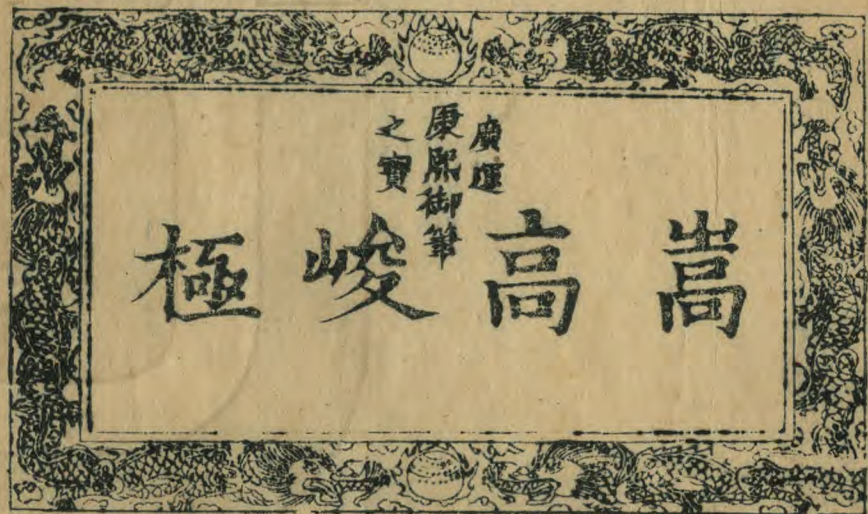 廣運
康熙御筆
之寶
嵩高峻極